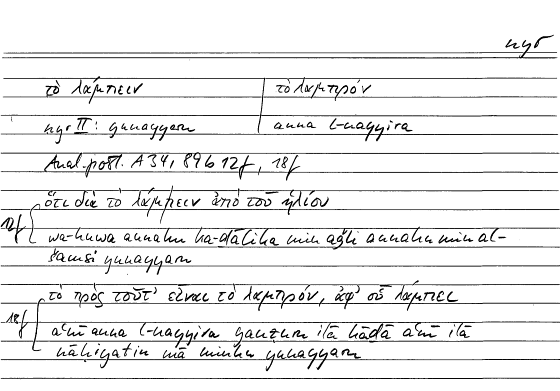 nyr
τὸ λάμπειν τὸ λαμπρόν
nyr II: yunayyaru anna l-nayyira
Anal. post. A 34, 89b 12f, 18f
ὅτι διὰ τὸ λάμπειν ἀπὸ τοῦ ἡλίου
12f wa-huwa annahu ka-ḏālika min aǧli annahu min al-
šamsi yunayyaru
τὸ πρὸς τοῦτ' εἶναι τὸ λαμπρόν, ἀφ' οὗ λάμπει
18f aʿnī anna l-nayyira yanẓuru ilā hāḏā aʿnī ilā
nāḥiyatin mā minhu yunayyaru